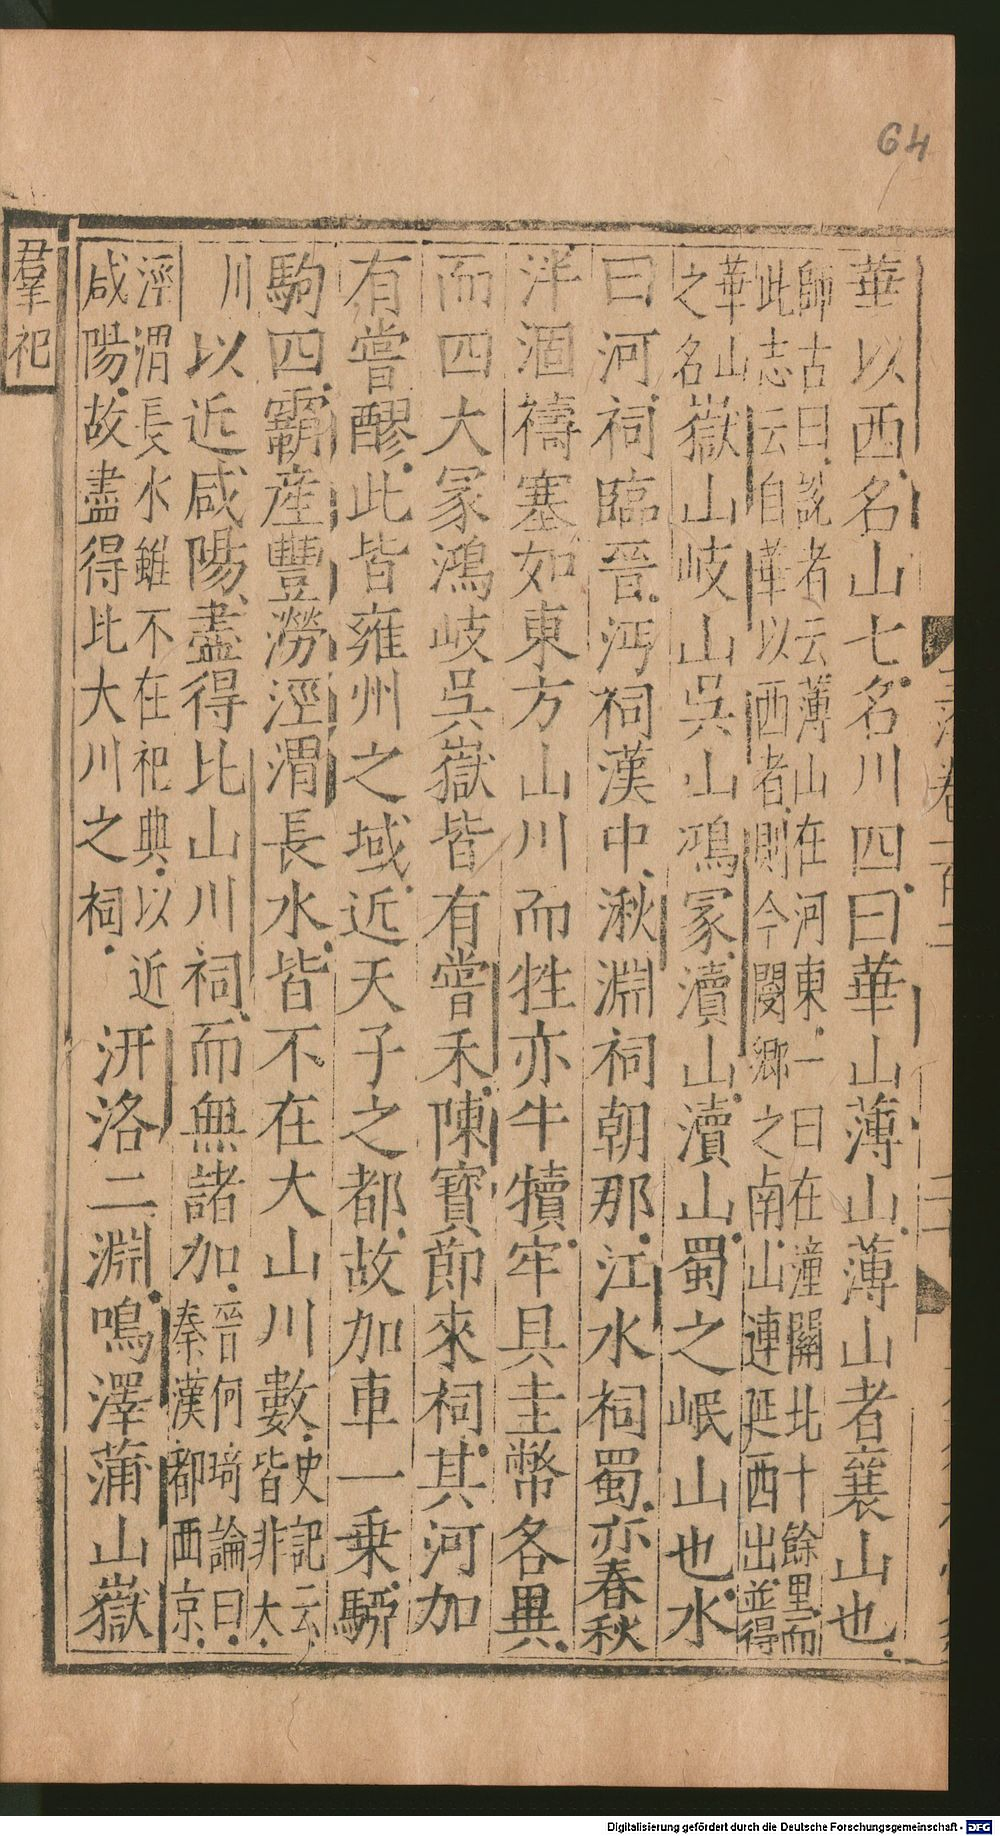 64
華以西名山七名川四曰華山薄山薄山者襄山也
師古曰說者云薄山在河東一曰在潼關北十餘里而
此志云自華以西者則今閿鄉之南山連延西出並得
華山
之名
嶽山岐山吳山鴻冢瀆山瀆山蜀之岷山也水
曰河祠臨晉沔祠漢中湫淵祠朝那江水祠蜀亦春秋
泮涸禱塞如東方山川而牲亦牛犢牢具圭幣各異
而四大冢鴻岐吳嶽皆有嘗禾陳寶節來祠其河加
有嘗醪此皆雍州之域近天子之都故加車一乗騮
駒四霸産豐澇涇渭長水皆不在大山川數
史記云
皆非大
川
以近咸陽盡得比山川祠而無諸加
晉何琦論曰
秦漢都西京
涇渭長水雖不在祀典以近
咸陽故盡得比大川之祠
汧洛二淵鳴澤蒲山嶽
群祀
Digitalisierung gefördert durch die Deutsche Forschungsgemeinschaft - DFG